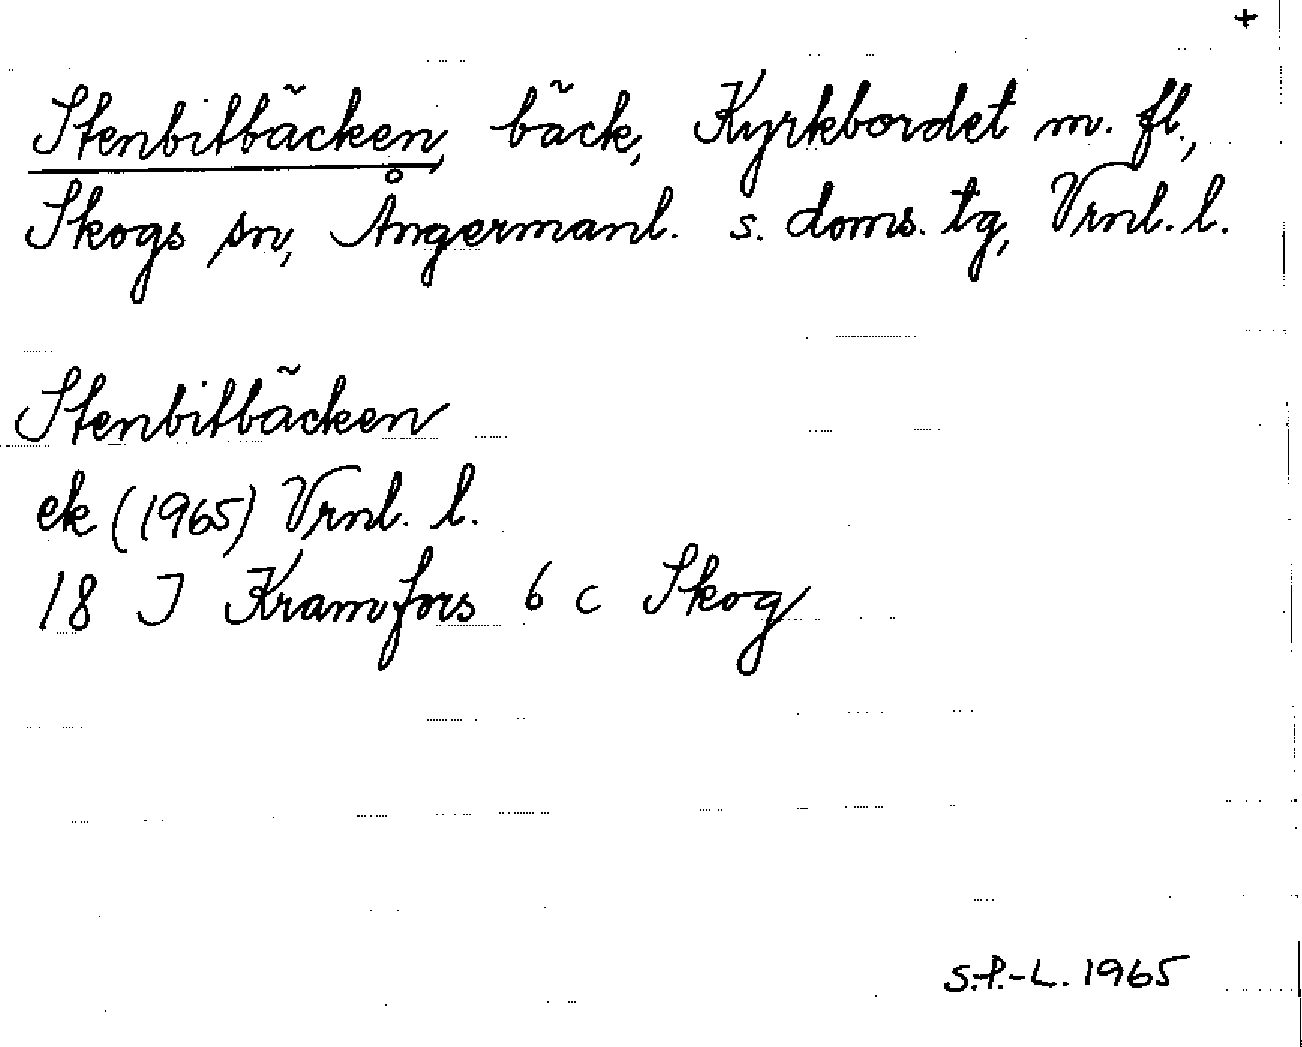 +
Stenbitbäcken, bäck, Kyrkbordet m. fl.,
Skogs sn, Ångermanl. s. doms. tg, Vrnl. l.
Stenbitbäcken
ek (1965) Vrnl. l.
18 J Kramfors 6 c Skog
S.P.-L. 1965